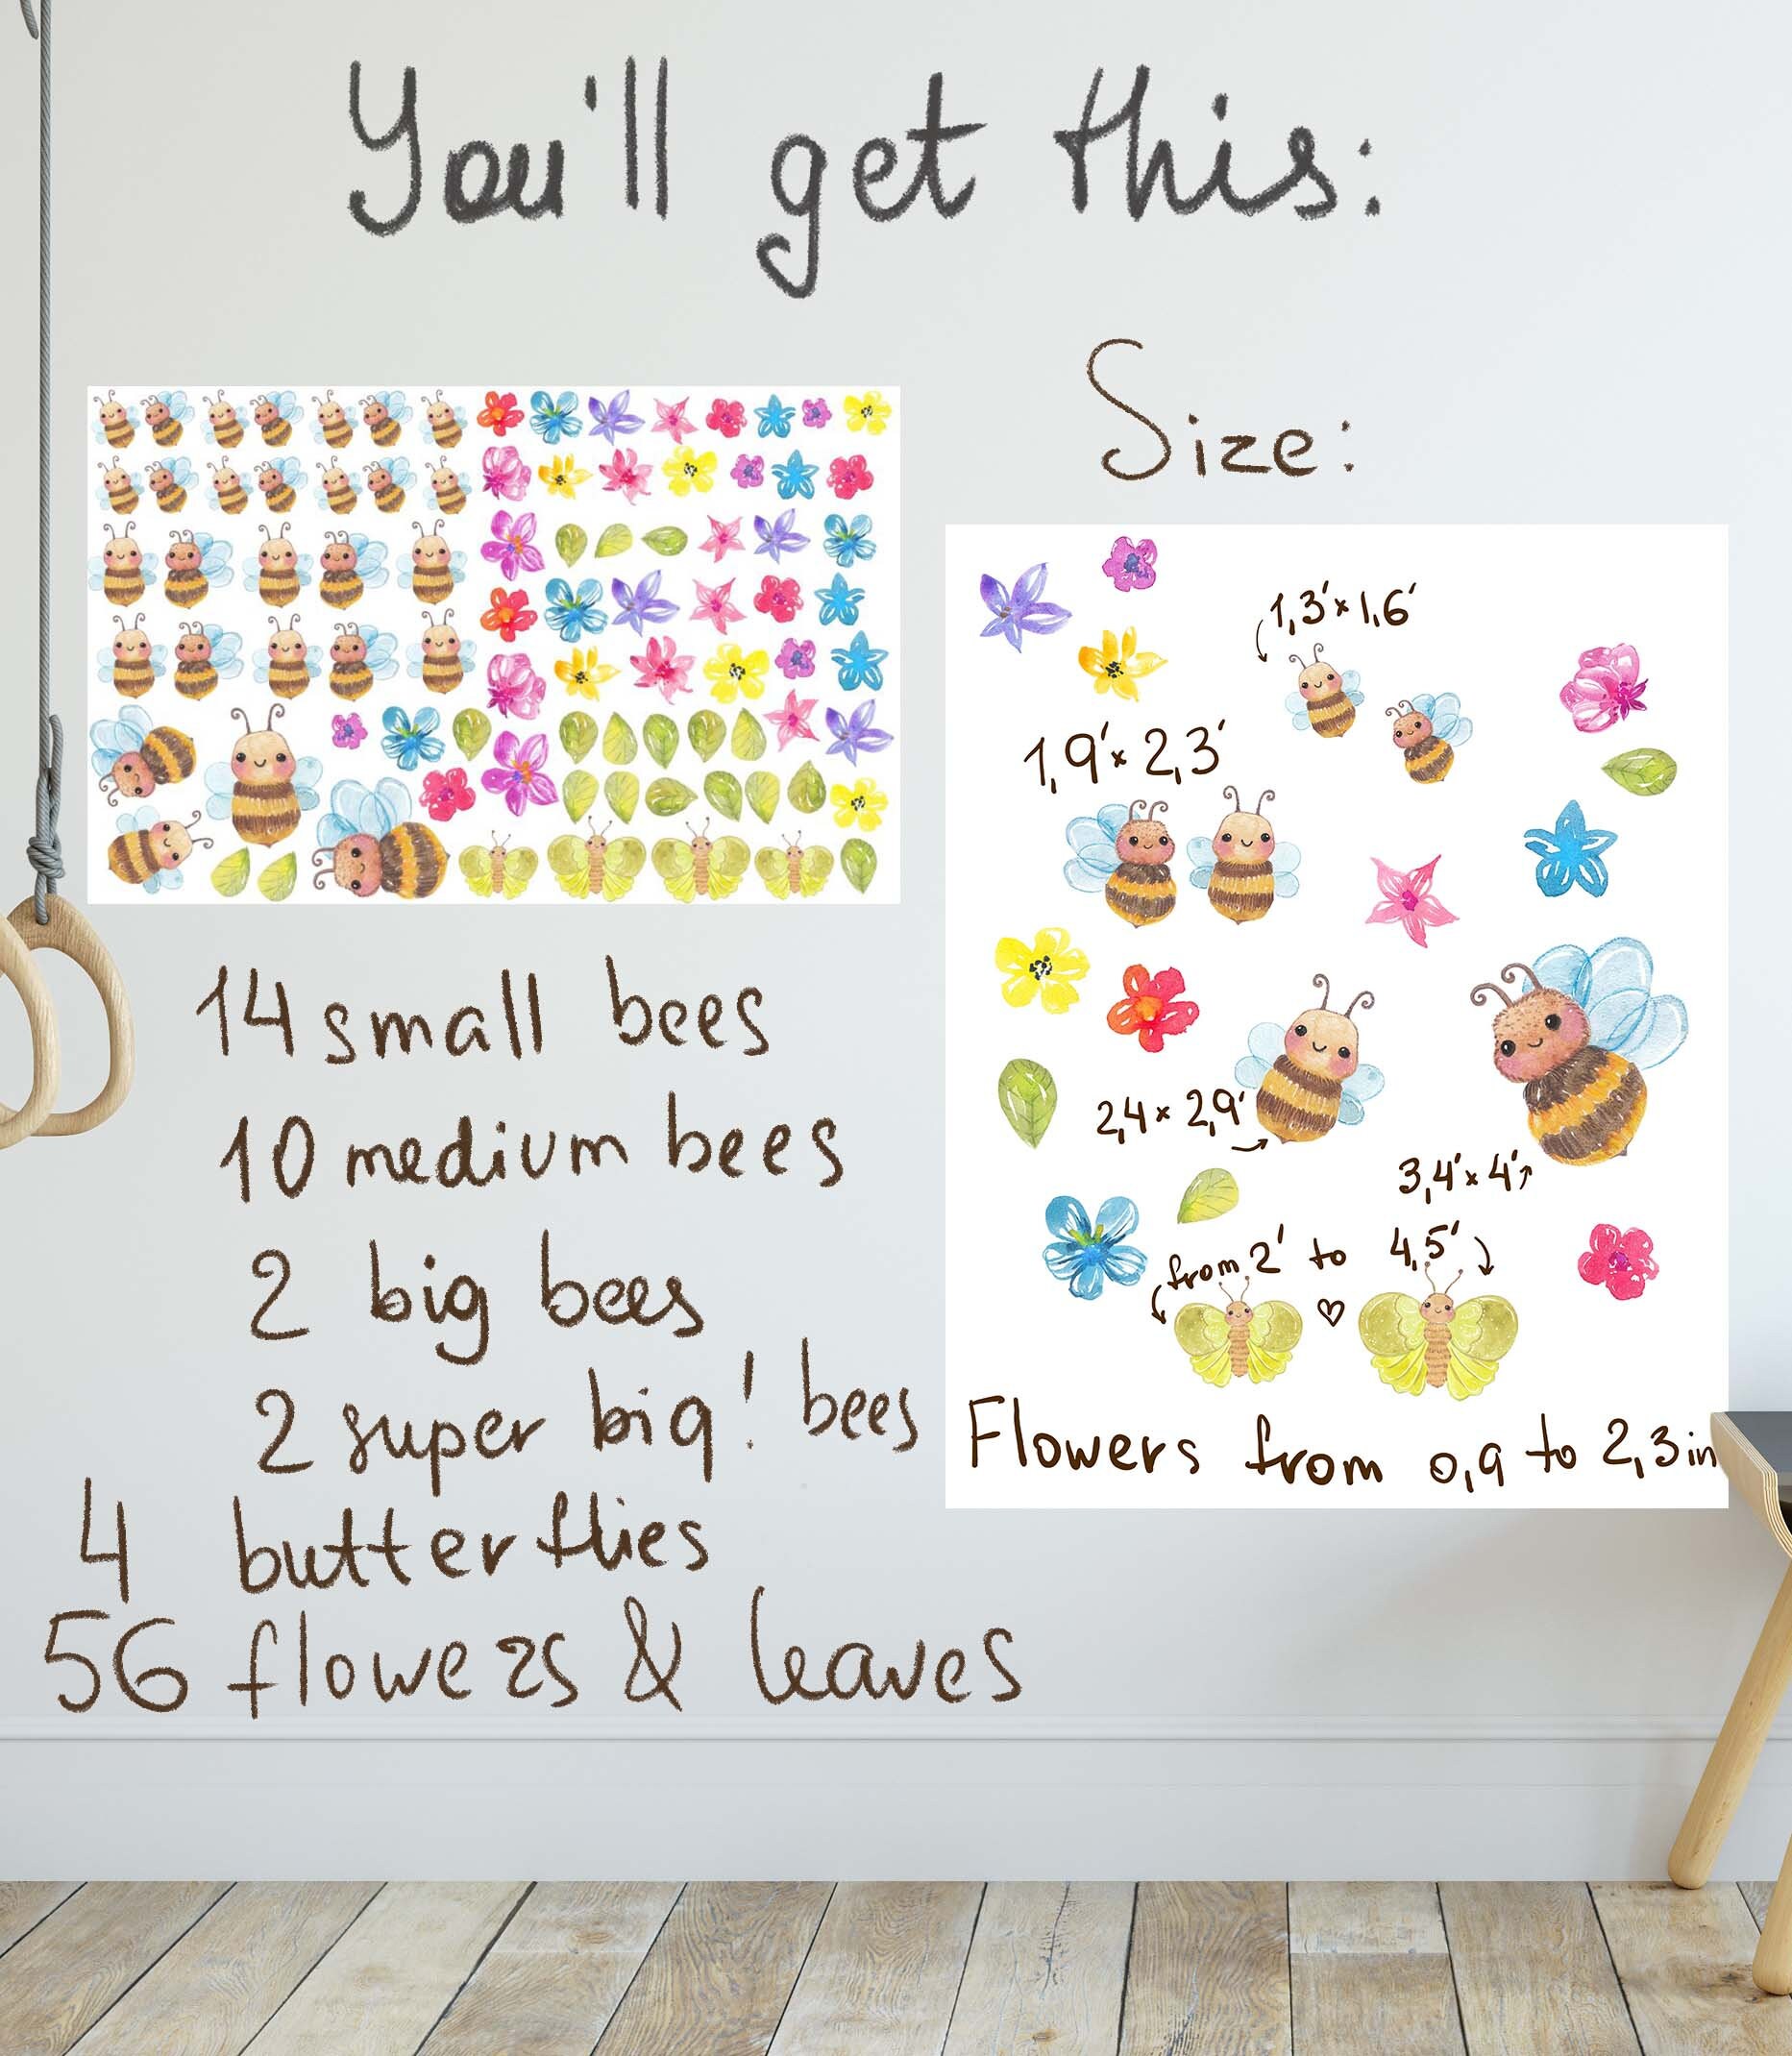 You'll get this:
Size:
1,3' x 1,6'
1,9' x 2,3'
2,4 x 2,9'
3,4' x 4'
from 2' to 4,5'
Flowers from 0,9 to 2,3 in
14 small bees
10 medium bees
2 big bees
2 super big! bees
4 butterflies
56 flowers & leaves